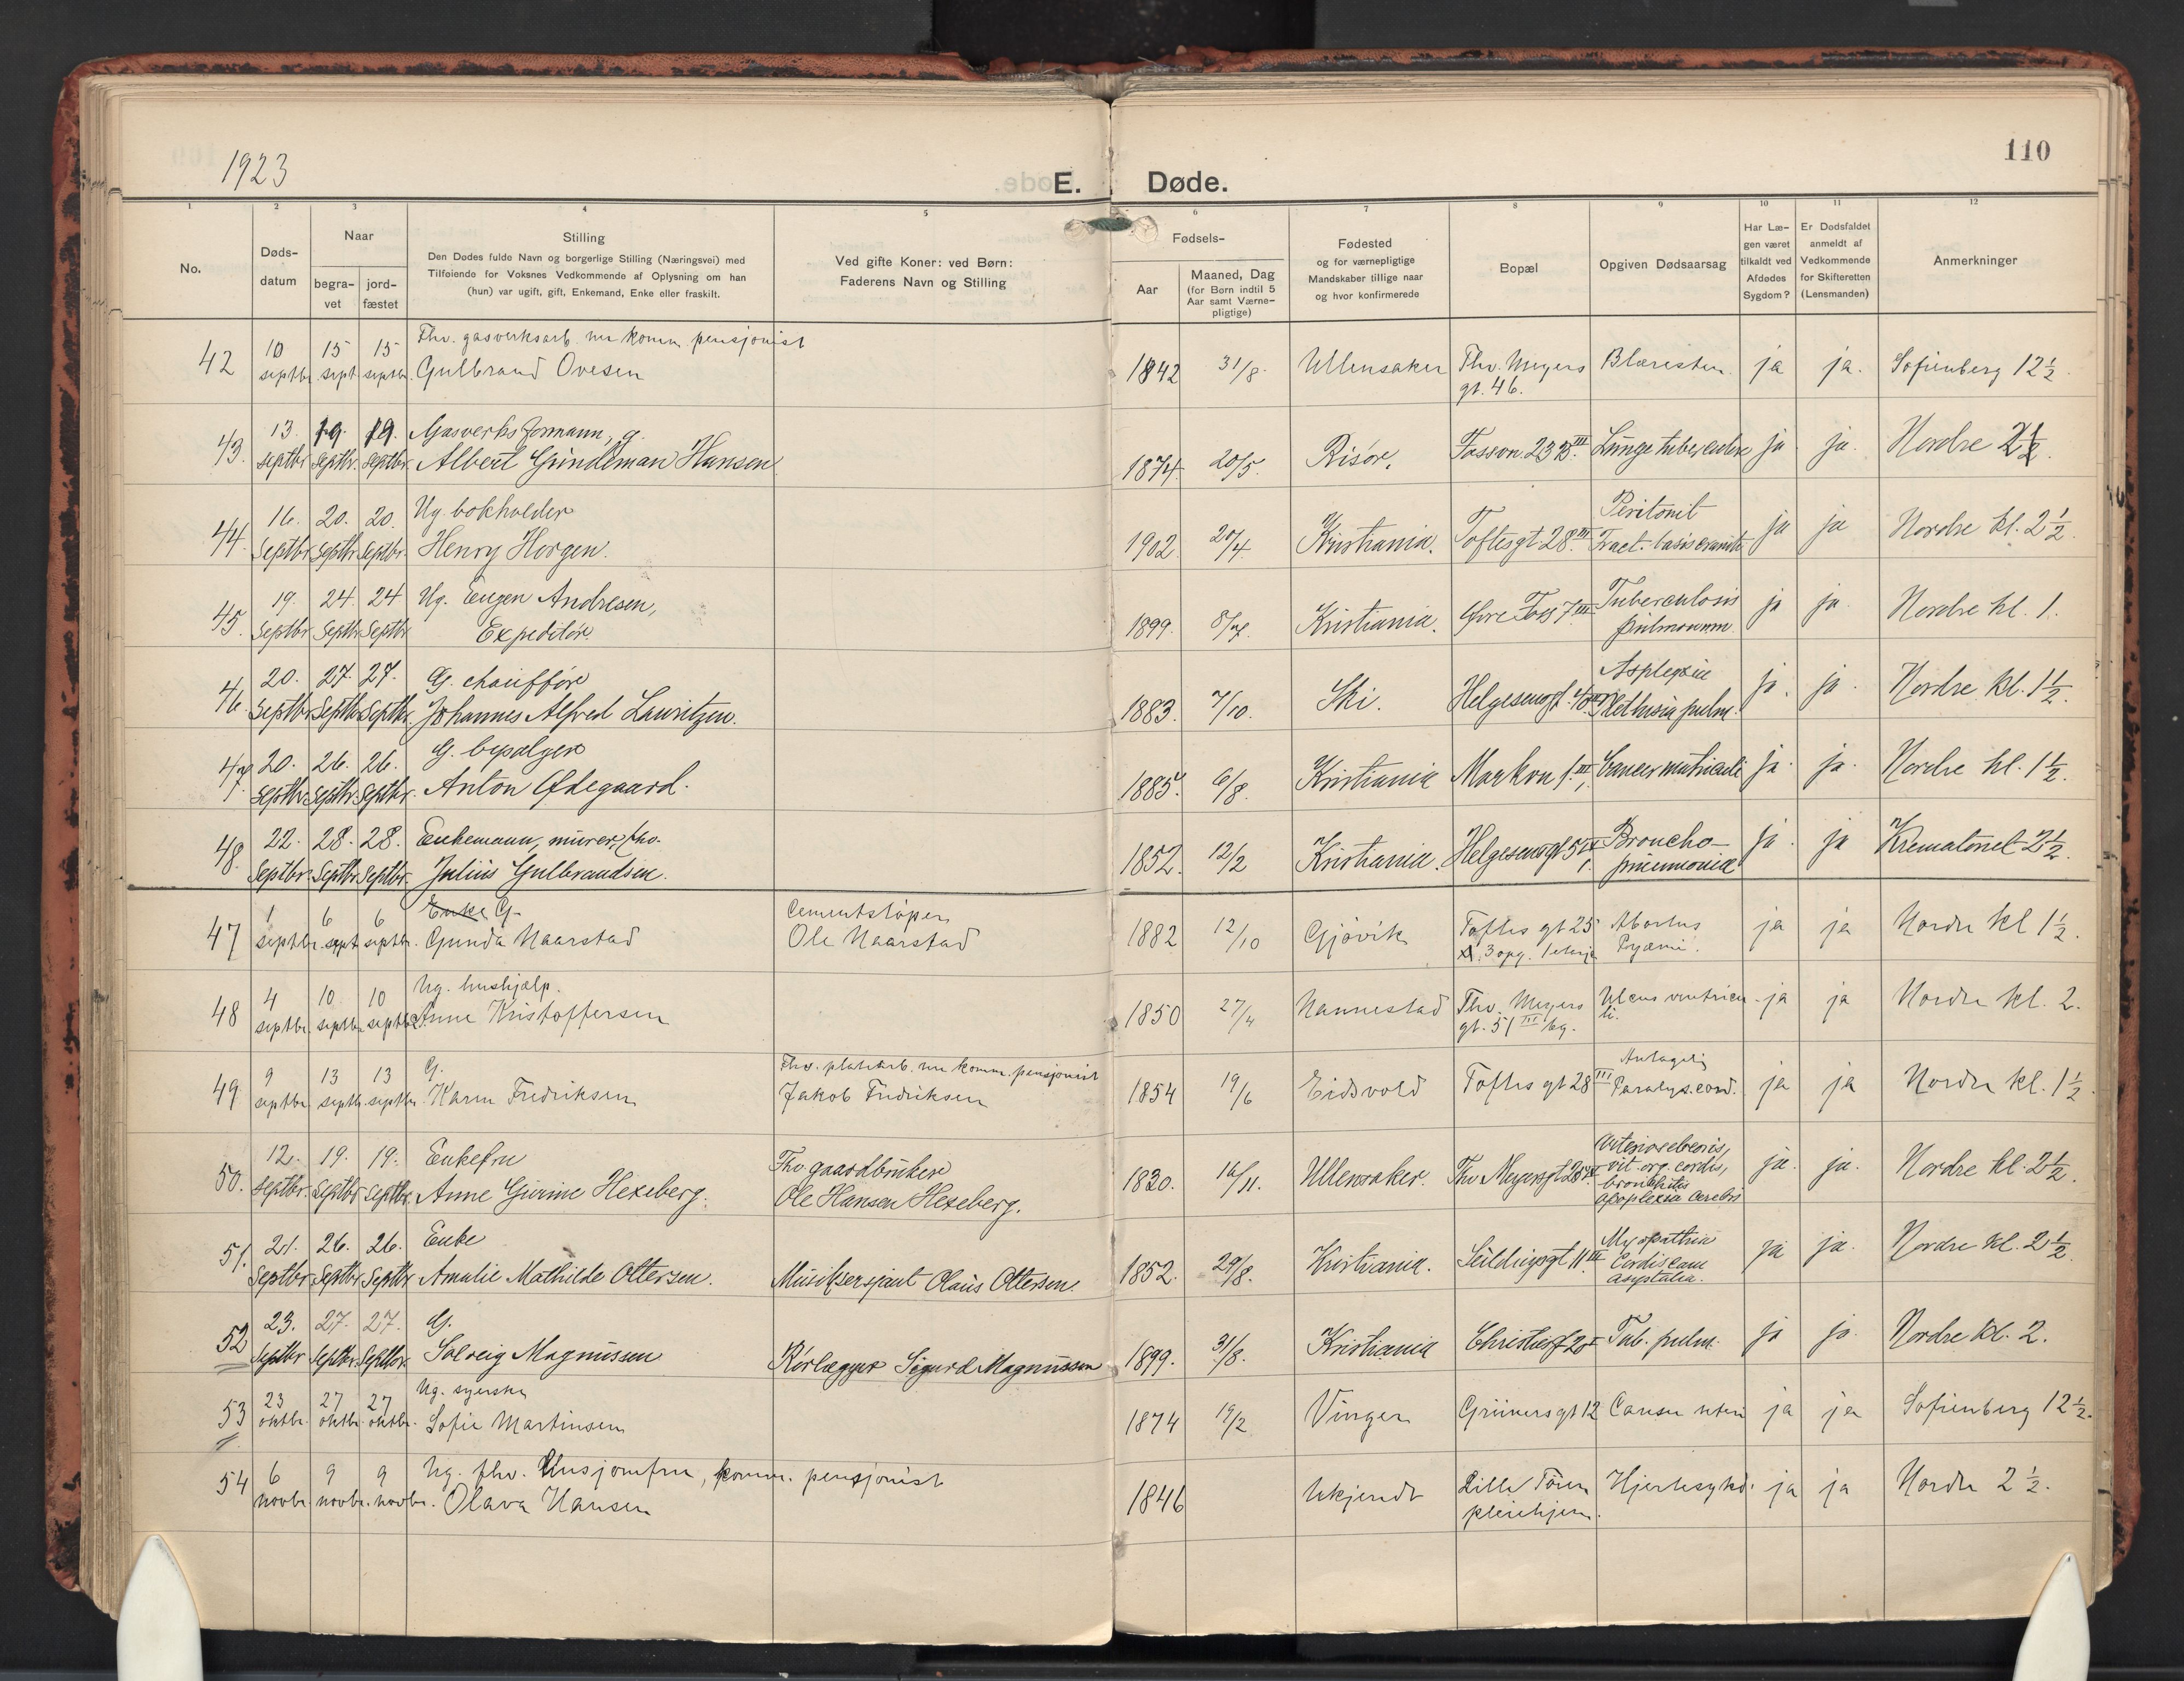 110
1923
E. Døde.
1 2 3 4 5 6 7 8 9 10 11 12
No.
Døds-
datum
Naar
begra-
vet
jord-
fæstet
Stilling
Den Dødes fulde Navn og borgerlige Stilling (Næringsvei) med
Tilføiende for Voksnes Vedkommende af Oplysning om han
(hun) var ugift, gift, Enkemand, Enke eller fraskilt.
Ved gifte Koner: ved Børn:
Faderens Navn og Stilling
Fødsels-
Aar
Maaned, Dag
(for Børn indtil 5
Aar samt Værne-
pligtige)
Fødested
og for værnepligtige
Mandskaber tillige naar
og hvor konfirmerede
Bopæl
Opgiven Dødsaarsag
Har Læ-
gen været
tilkaldt ved
Afdødes
Sygdom?
Er Dødsfaldet
anmeldt af
Vedkommende
for Skifteretten
(Lensmanden)
Anmerkninger
Fhv. gasverksarb. nu komm. pensjonist
42 10 septbr. 15 sept 15 septbr. Gulbrand Ovesen 1842 31/8. Ullensaker Thv. Meyers Blæresten ja ja. Sofienberg 12 1/2.
gt. 46.
43. 13. 19. 19. Gasverksformann, g.
septbr. septbr. septbr. Albert Grindeman Hansen 1874. 20/5. Risør. Fossvn. 23 B. III Lungetuberculose ja ja. Nordre 2 1/2.
44. 16. 20. 20. Ug. bokholder Peritonit
Septbr. Septbr. Septbr. Henry Horgen. 1902. 20/4. Kristiania. Toftesgt. 28. III Fract. basis cranii ja ja Nordre kl. 2 1/2.
45. 19. 24. 24 Ug. Eugen Andresen, Tuberculosis
Septbr. Septbr. Septbr. Expeditør. 1899. 8/7. Kristiania. Øvre Foss 7 III pulmonum ja ja. Nordre kl. 1.
46. 20. 27. 27. G. chauffør
Septbr. Septbr. Septbr. Johannes Alfred Lauritzen. 1883. 7/10. Ski. Helgesensgt. pulm. ja. ja. Nordre kl. 1 1/2.
47. 20. 26. 26. G. bypålger
septbr. septbr. septbr. Anton Ødegaard. 1885. 6/8. Kristiania Markvn 1. III Cancer ventriculi ja. ja. Nordre kl. 1 1/2.
48. 22. 28. 28. Enkemann, murer, fho. Broncho-
Septbr. Septbr. Septbr. Julius Gulbrandsen. 1852. 12/2 Kristiania. Helgesensgt. pneumonia ja. ja Krematoriet 2 1/2.
47 1 septbr. 6 sept 6 septbr. Enke G. Cementstøper
Gunda Naarstad Ole Naarstad 1882 12/10 Gjøvik Toftes gt 25 Abortus ja ja Nordre kl 1 1/2.
3 opg. 1 etasje Pyæmi.
48 4 septbr. 10 septbr. 10 septbr. Ug. hushjælp.
Anne Kristoffersen 1850 27/4 Nannestad Thv. Meyers Ulcus ventricu- ja ja Nordre kl. 2.
gt. 51 III bg. li.
49. 9 septbr. 13 septbr. 13 septbr. G. Fhv. platearb. nu komm. pensjonist Antagelig
Karen Fredriksen Jakob Fredriksen 1854 19/6 Eidsvold Toftes gt 28 III Paralys. cord. ja ja Nordre kl. 1 1/2
50. 12. 19. 19. Enkefru Fhv. gaardbruker Arteriosclerosis,
septbr. septbr. septbr. Anne Gurine Hexeberg. Ole Hansen Hexeberg. 1830. 16/11. Ullensaker. Thv Meyersgt vit. org. cordis, ja. ja. Nordre kl. 2 1/2.
bronchitis
apoplexia cerebri
51. 21. 26. 26. Enke Myopathia
Septbr. Septbr. Septbr. Amalie Mathilde Ottersen. Musiksersjant Olaus Ottersen. 1852. 29/8. Kristiania. Seilduksgt 11 III Cordis cum ja ja. Nordre kl. 2 1/2.
asystolia.
52 23. 27. 27. G.
Septbr Septbr. Septbr. Solveig Magnussen Rørlægger Sigurd Magnussen 1899. 31/8. Kristiania Tub. pulm. ja ja. Nordre kl. 2.
53 23 oktbr. 27 oktbr. 27 oktbr. Ug. syerske
Sofie Martinsen 1874 19/2 Vinger Grünersgt 12 Cancer uteri ja ja Sofienberg 12 1/2.
54 6 novbr. 9 novbr. 9 novbr. Ug. fhv. Husjomfru, komm. pensjonist
Olava Hansen 1846 Ukjendt Lille Tøien Hjertesykd. ja ja Nordre 2 1/2.
pleiehjem.